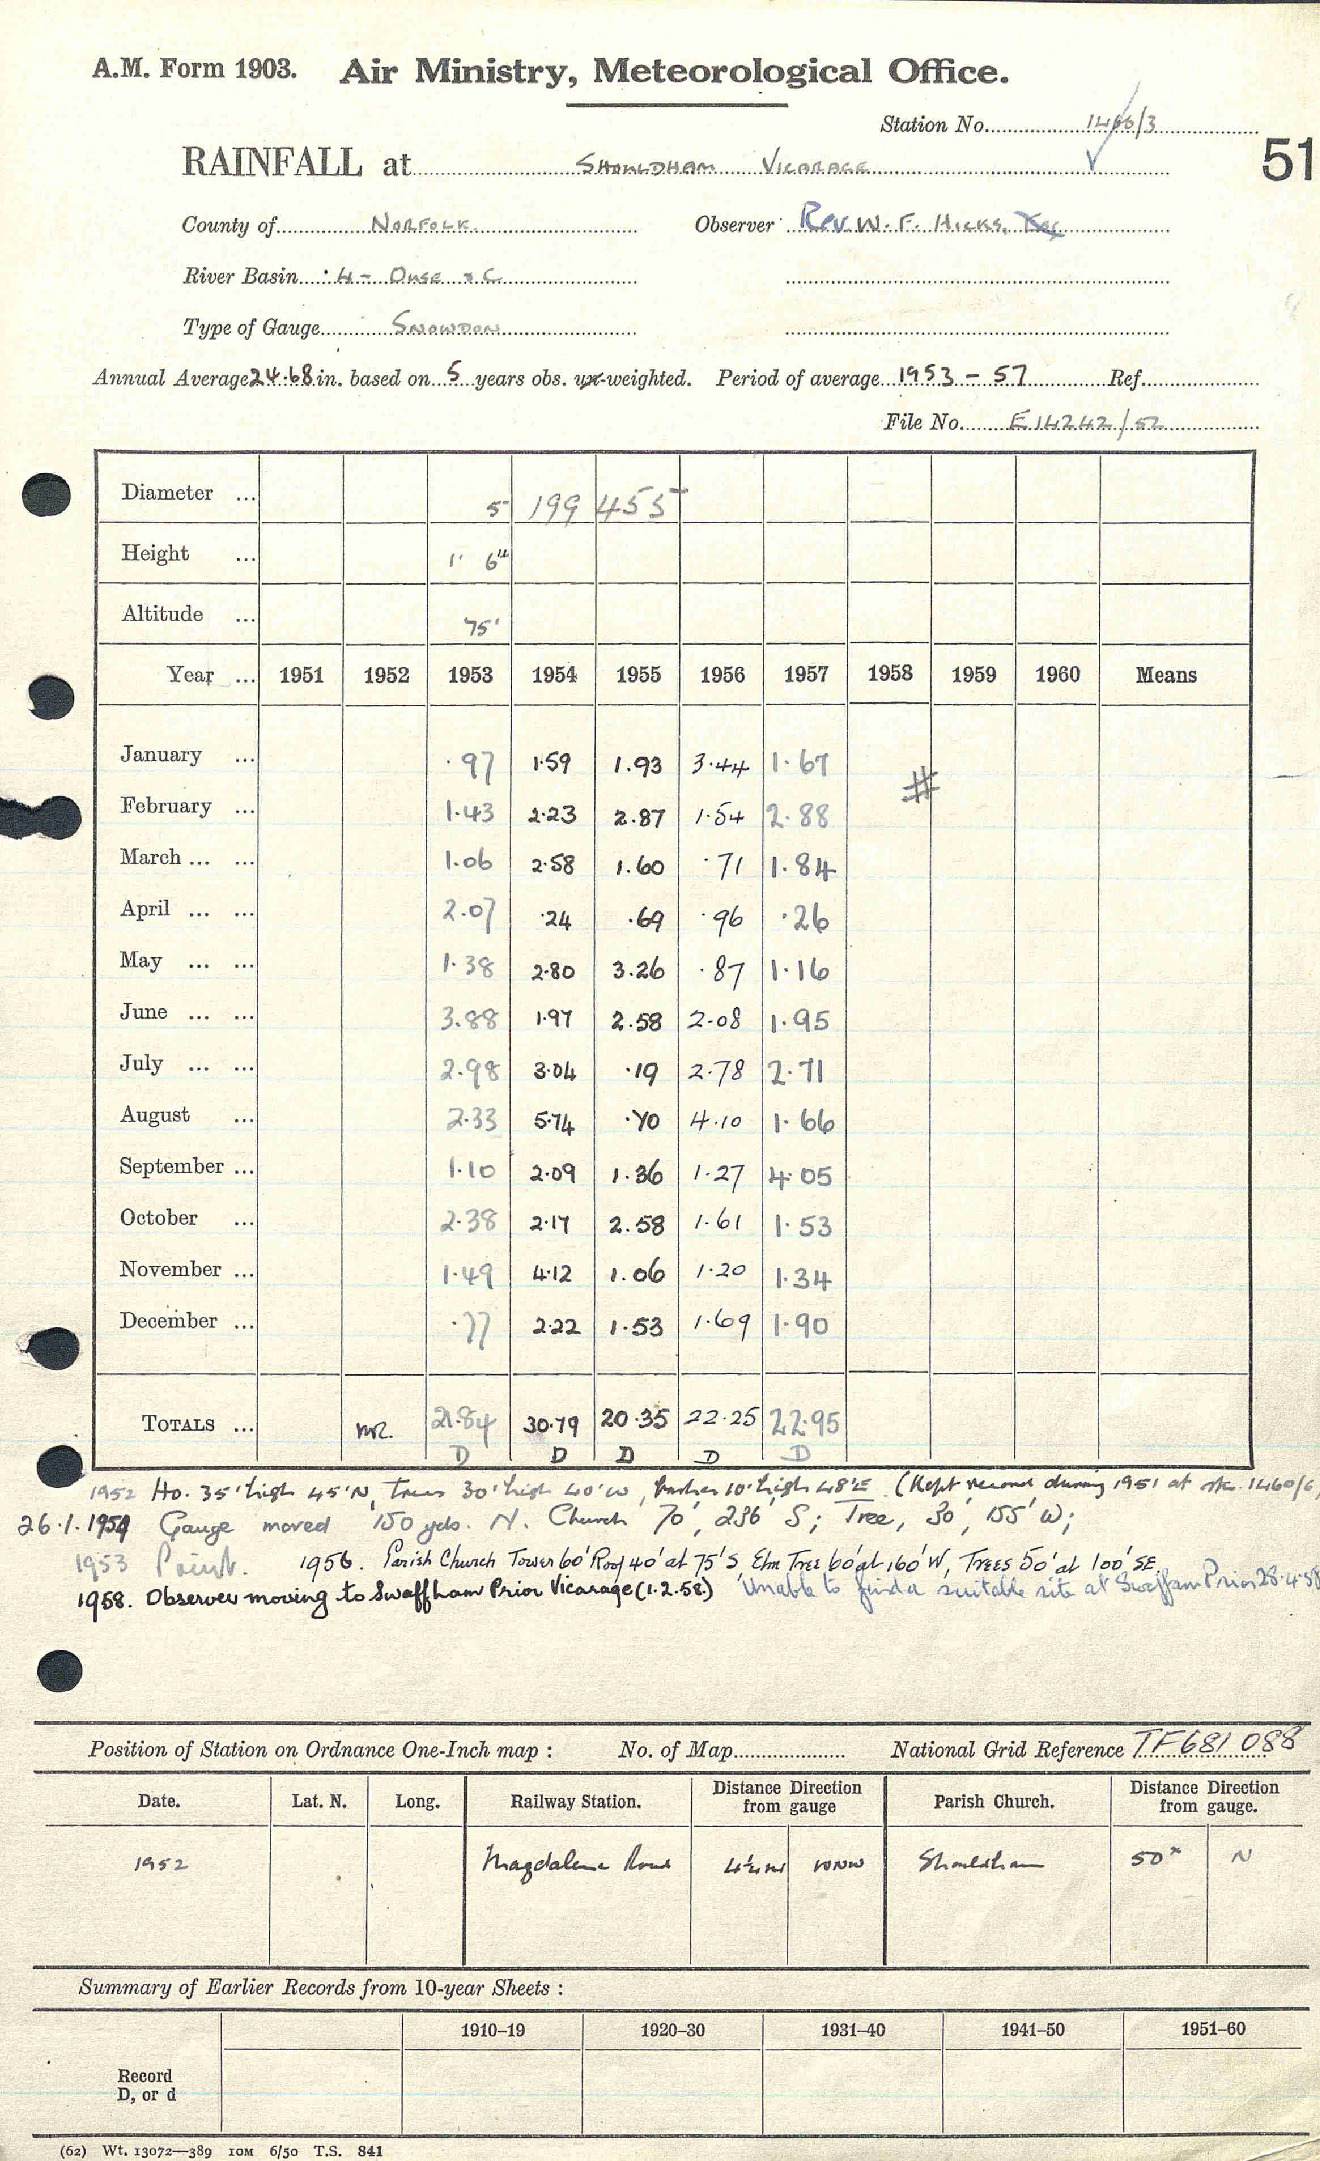 A.M. Form 1903. Air Ministry, Meteorological Office.
Station No. 1460/3
51
RAINFALL at SHOULDHAM VICARAGE
County of NORFOLK. Observer Rev. W. F. HICKS,
River Basin 4 - OUSE & C
Type of Gauge SNOWDON
Annual Average 24.68 in. based on 5 years obs. weighted. Period of average 1953 - 57 Ref.
File No. E 14242/52
Diameter ... 5 199 455
Height ... 1' 6"
Altitude ... 75'
Year ... 1951 1952 1953 1954 1955 1956 1957 1958 1959 1960 Means
January ... .97 1.59 1.93 3.44 1.67 #
February ... 1.43 2.23 2.87 1.54 2.88
March ... ... 1.06 2.58 1.60 .71 1.84
April ... ... 2.07 .24 .69 .96 .26
May ... ... 1.38 2.80 3.26 .87 1.16
June ... ... 3.88 1.97 2.58 2.08 1.95
July ... ... 2.98 3.04 .19 2.78 2.71
August ... 2.33 5.74 .70 4.10 1.66
September ... 1.10 2.09 1.36 1.27 4.05
October ... 2.38 2.17 2.58 1.61 1.53
November ... 1.49 4.12 1.06 1.20 1.34
December ... .77 2.22 1.53 1.69 1.90
TOTALS ... 21.84 30.79 20.35 22.25 22.95
D D D D D
1952 Ho. 35' high 45' N, Trees 30' high 40' W, 10' high 48' E (Kept record during 1951 at 1460/6)
26.1.1954 Gauge moved 150 yds. N. Church 70', 236' S; Tree, 30', 155' W;
1953 Paint. 1956. Parish Church Tower 60' Roof 40' at 75' S, Elm Tree 60' at 160' W, Trees 50' at 100' SE
1958. Observer moving to Swaffham Prior Vicarage (1.2.58) Unable to find a suitable site at Swaffam Prior 28.4.58
Position of Station on Ordnance One-Inch map : No. of Map National Grid Reference TF681088
Date. Lat. N. Long. Railway Station. Distance Direction from gauge Parish Church. Distance Direction from gauge.
1952 Magdalene Road Shouldham 50ˣ N
Summary of Earlier Records from 10-year Sheets :
1910–19 1920–30 1931–40 1941–50 1951–60
Record
D, or d
(62) Wt. 13072—389 10M 6/50 T.S. 841